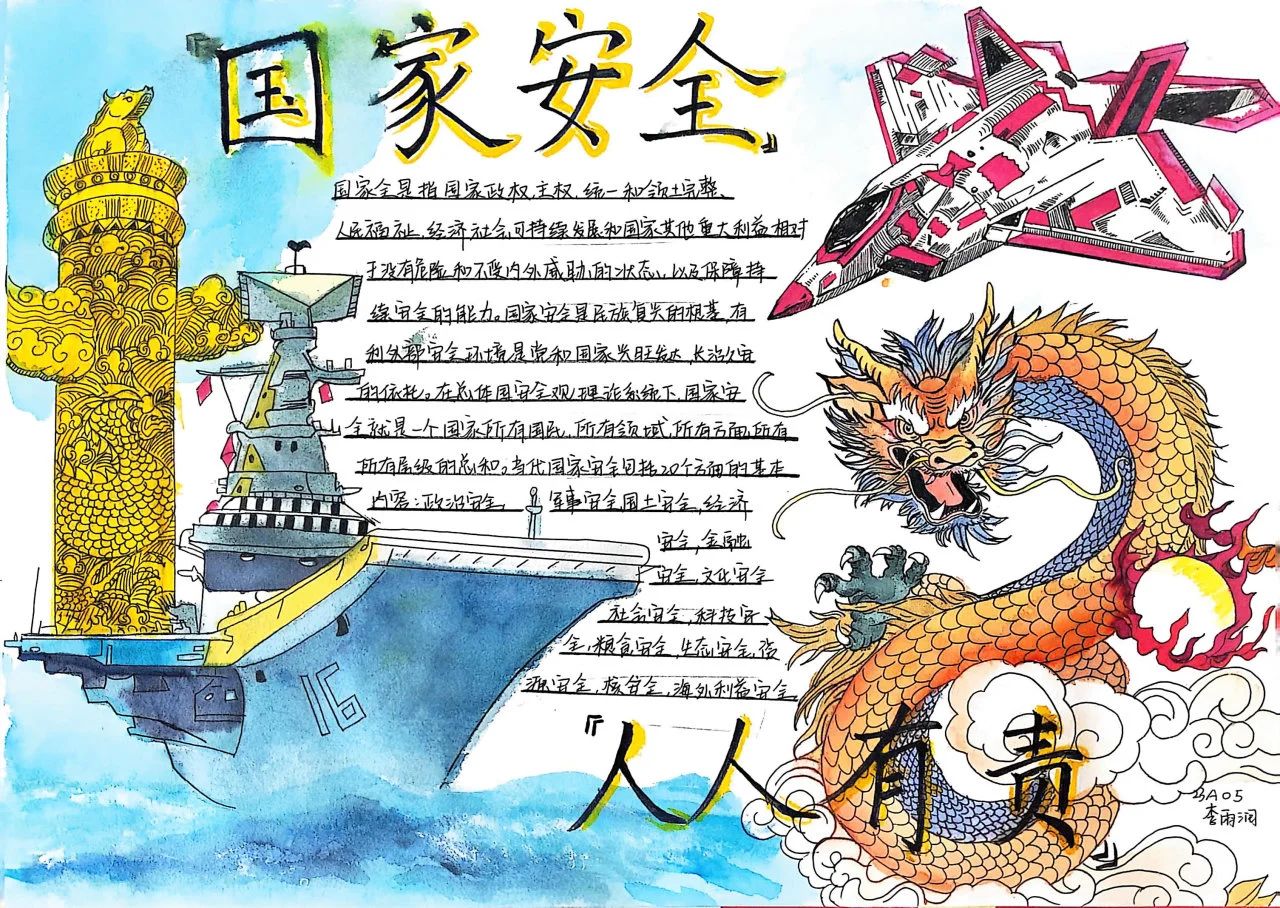 『国家安全』
国家全是指国家政权、主权、统一和领土完整、
人民福祉、经济社会可持续发展和国家其他重大利益相对
于没有危险和不受内外威胁的状态、以及保障持
续安全的能力。国家安全是民族复兴的根基,有
利外部安全环境是党和国家兴旺发达,长治久安
的依托。在总体国安全观理论系统下,国家安
全就是一个国家所有国民,所有领域,所有方面,所有
所有层级的总和。当代国家安全包括20个方面的基本
内容:政治安全, 军事安全国土安全,经济
安全,金融
安全,文化安全
社会安全,科技安
全,粮食安全,生态安全,资
源安全,核安全,海外利益安全
16
『人人有责』
3A05
李雨润